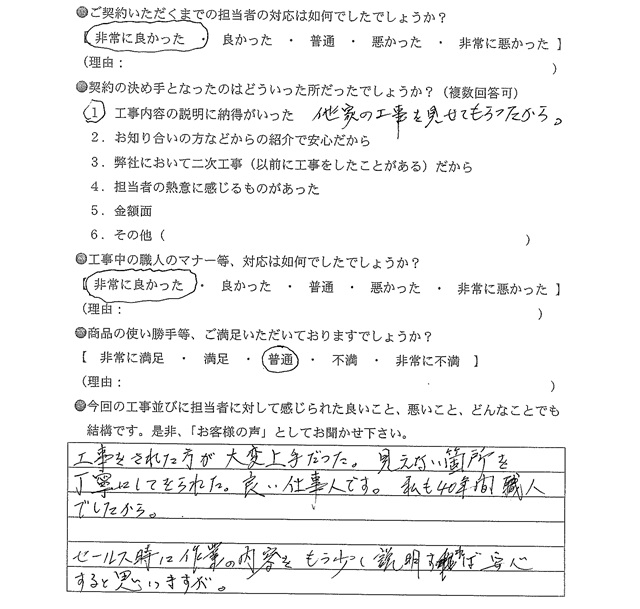 ●ご契約いただくまでの担当者の対応は如何でしたでしょうか？
【 非常に良かった ・ 良かった ・ 普通 ・ 悪かった ・ 非常に悪かった 】
（理由： ）
●契約の決め手となったのはどういった所だったでしょうか？（複数回答可）
1 工事内容の説明に納得がいった 他家の工事を見せてもらったから。
２．お知り合いの方などからの紹介で安心だから
３．弊社において二次工事（以前に工事をしたことがある）だから
４．担当者の熱意に感じるものがあった
５．金額面
６．その他（ ）
●工事中の職人のマナー等、対応は如何でしたでしょうか？
【 非常に良かった ・ 良かった ・ 普通 ・ 悪かった ・ 非常に悪かった 】
（理由： ）
●商品の使い勝手等、ご満足いただいておりますでしょうか？
【 非常に満足 ・ 満足 ・ 普通 ・ 不満 ・ 非常に不満 】
（理由： ）
●今回の工事並びに担当者に対して感じられた良いこと、悪いこと、どんなことでも
結構です。是非、「お客様の声」としてお聞かせ下さい。
工事をされた方が大変上手だった。見えない箇所を
丁寧にしてをられた。良い仕事人です。私も40年間職人
でしたから。
セールス時に作業の内容をもう少く説明すれば安心
すると思いますが。